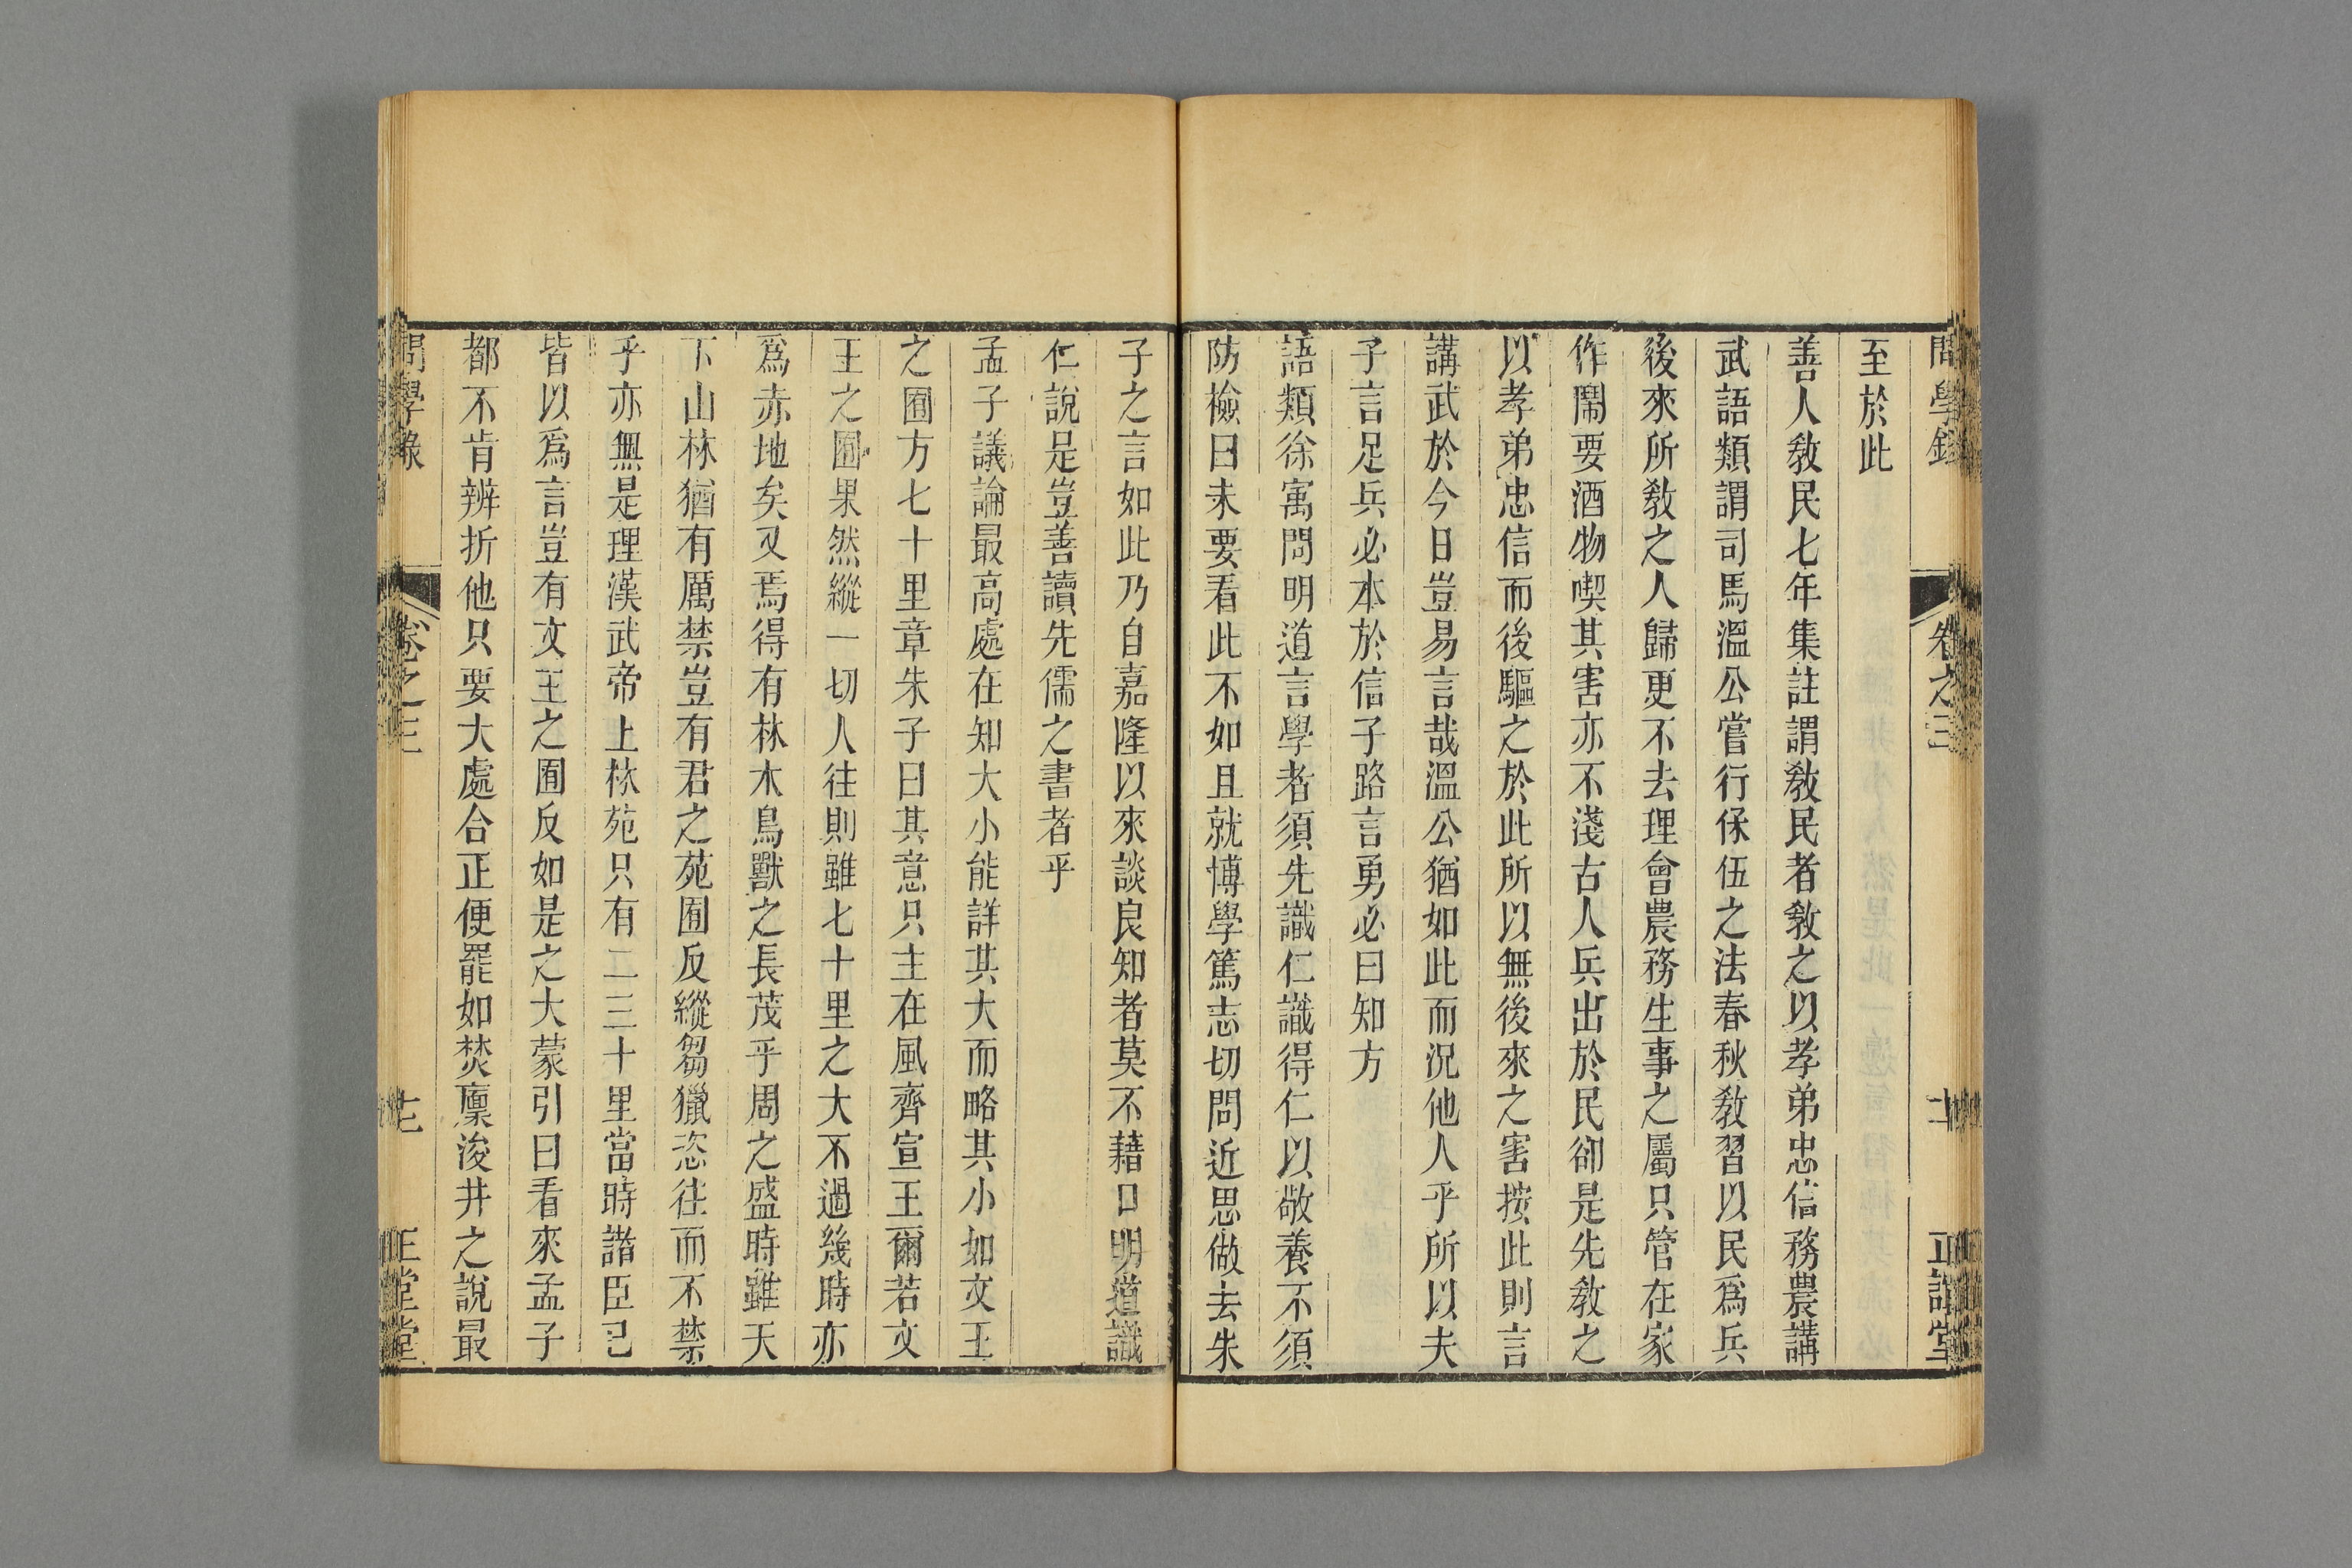 問學錄 卷之三 十一 正誼堂
至於此
善人教民七年集註謂教民者教之以孝弟忠信務農講
武語類謂司馬溫公嘗行保伍之法春秋教習以民爲兵
後來所教之人歸更不去理會農務生事之屬只管在家
作鬧要酒物喫其害亦不淺古人兵出於民卻是先教之
以孝弟忠信而後驅之於此所以無後來之害按此則言
講武於今日豈易言哉溫公猶如此而況他人乎所以夫
子言足兵必本於信子路言勇必曰知方
語類徐寓問明道言學者須先識仁識得仁以敬養不須
防檢曰未要看此不如且就博學篤志切問近思做去朱
子之言如此乃自嘉隆以來談良知者莫不藉口明道識
仁說是豈善讀先儒之書者乎
孟子議論最高處在知大小能詳其大而略其小如文王
之囿方七十里章朱子曰其意只主在風齊宣王爾若文
王之囿果然縱一切人往則雖七十里之大不過幾時亦
爲赤地矣又焉得有林木鳥獸之長茂乎周之盛時雖天
下山林猶有厲禁豈有君之苑囿反縱芻獵恣往而不禁
乎亦無是理漢武帝上林苑只有二三十里當時諸臣已
皆以爲言豈有文王之囿反如是之大蒙引曰看來孟子
都不肯辨折他只要大處合正便罷如焚廩浚井之說最
問學錄 卷之三 十二 正誼堂